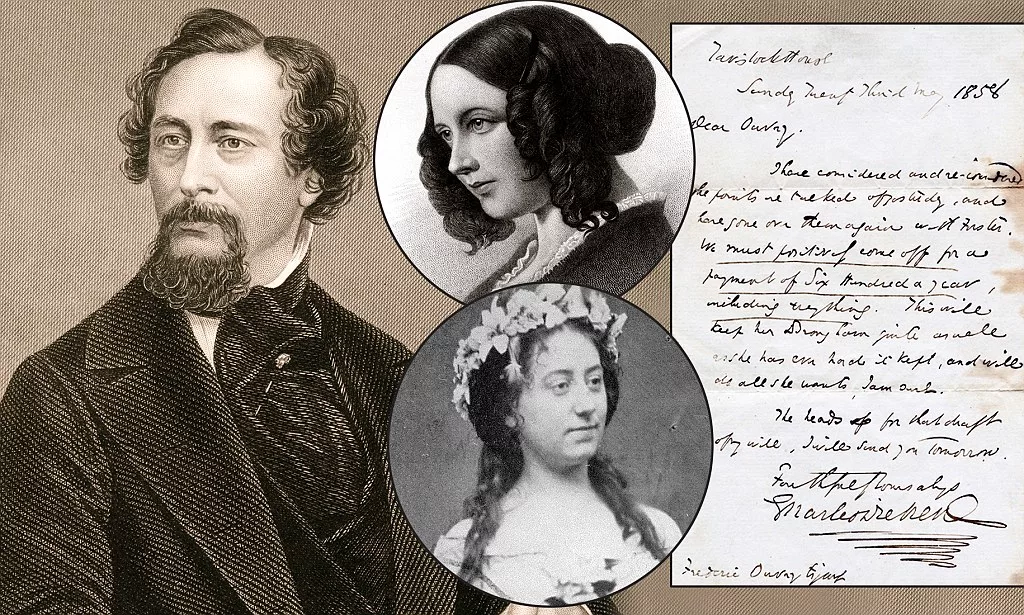 Tavistock House
Sunday Twenty Third May 1858
Dear Ouvry.
I have considered and re-considered
the points we talked of yesterday, and
have gone over them again with Forster.
We must positively come off for a
payment of Six Hundred a year,
including everything. This will
keep her Brougham quite as well
as she has ever had it kept, and will
do all she wants, I am sure.
The heads for that draft
of my will, I will send you tomorrow.
Faithfully Yours always
Charles Dickens
Frederic Ouvry Esquire